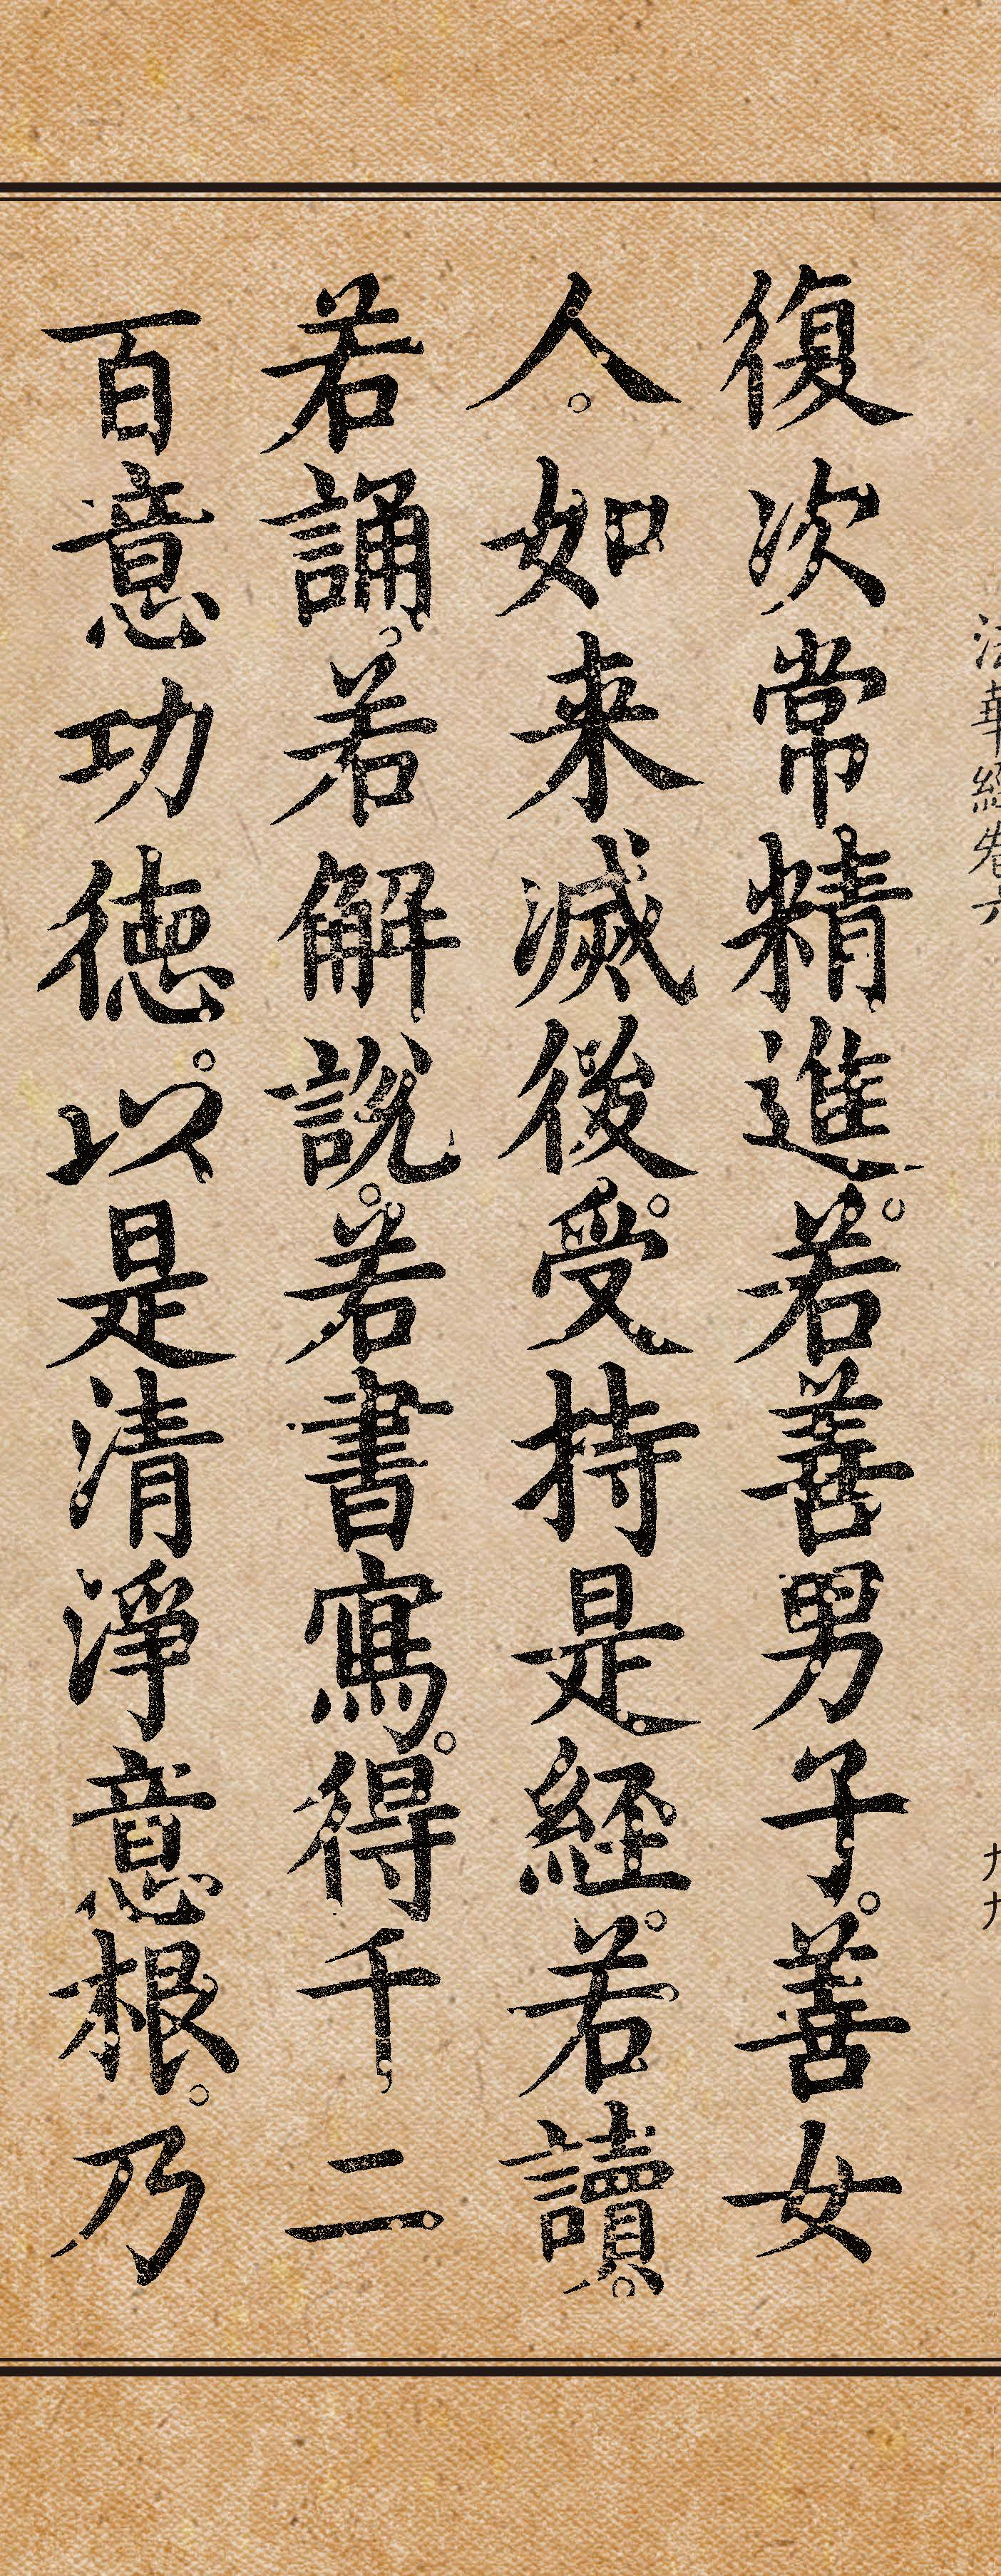 法華經卷六
九九
復次常精進。若善男子。善女
人。如来滅後。受持是経。若讀。
若誦。若解說。若書寫。得千二
百意功徳。以是清淨意根。乃